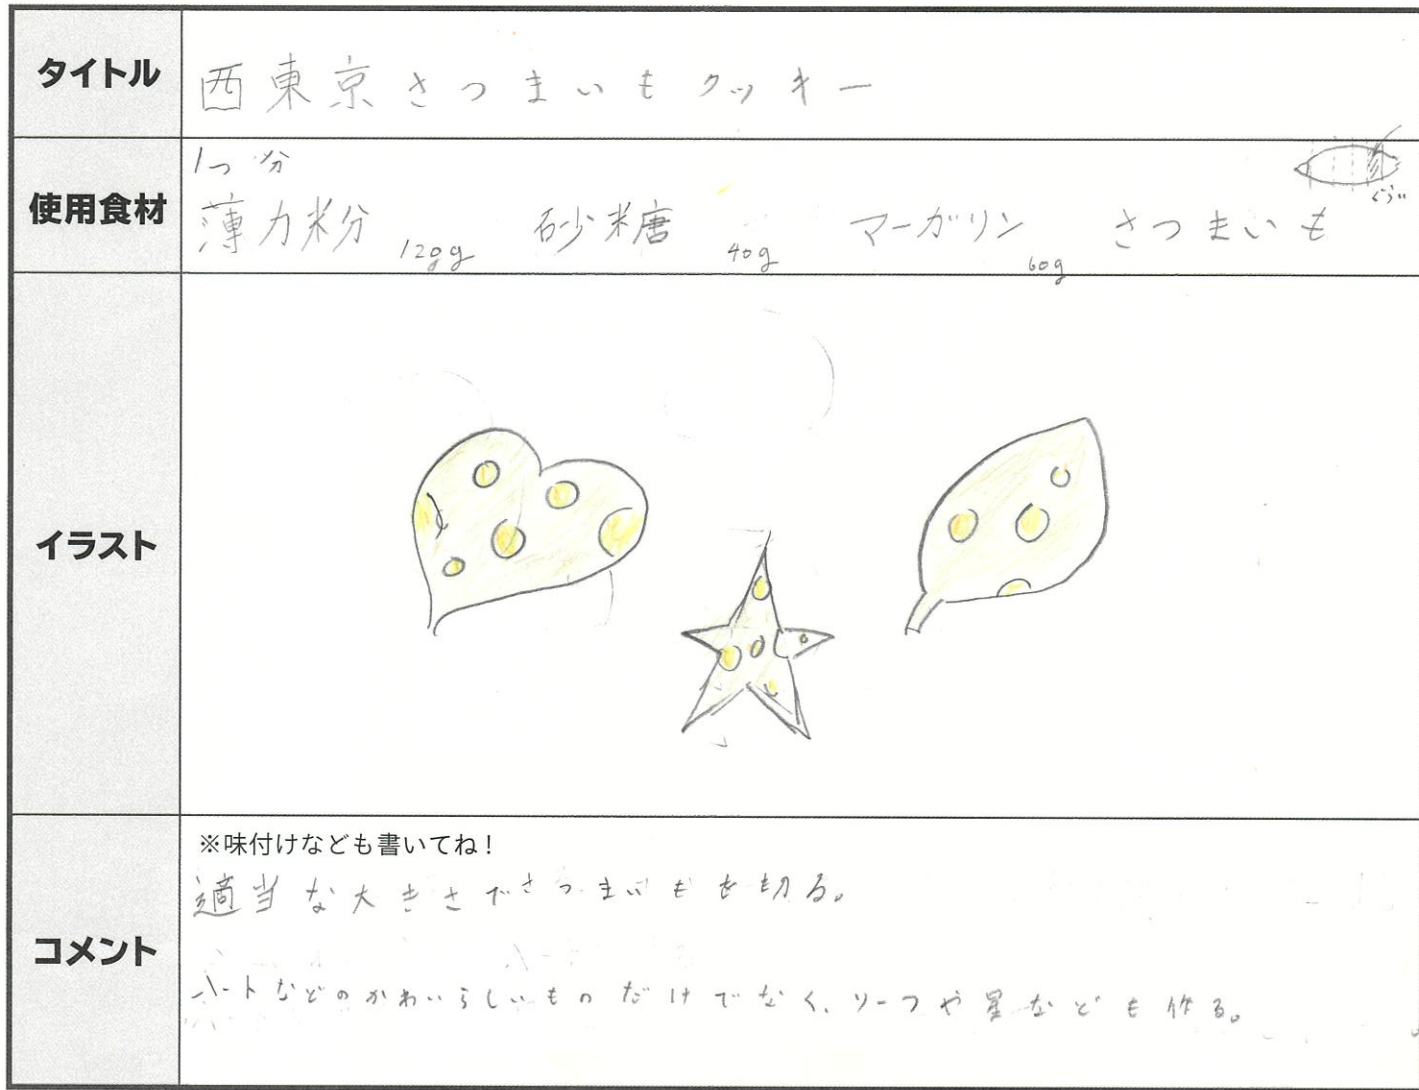 タイトル
西東京さつまいもクッキー
使用食材
1つ分
ぐらい
薄力粉 120g 砂糖 40g マーガリン 60g さつまいも
イラスト
コメント
※味付けなども書いてね!
適当な大きさでさつまいもを切る。
ハートなどのかわいらしいものだけでなく、リーフや星なども作る。